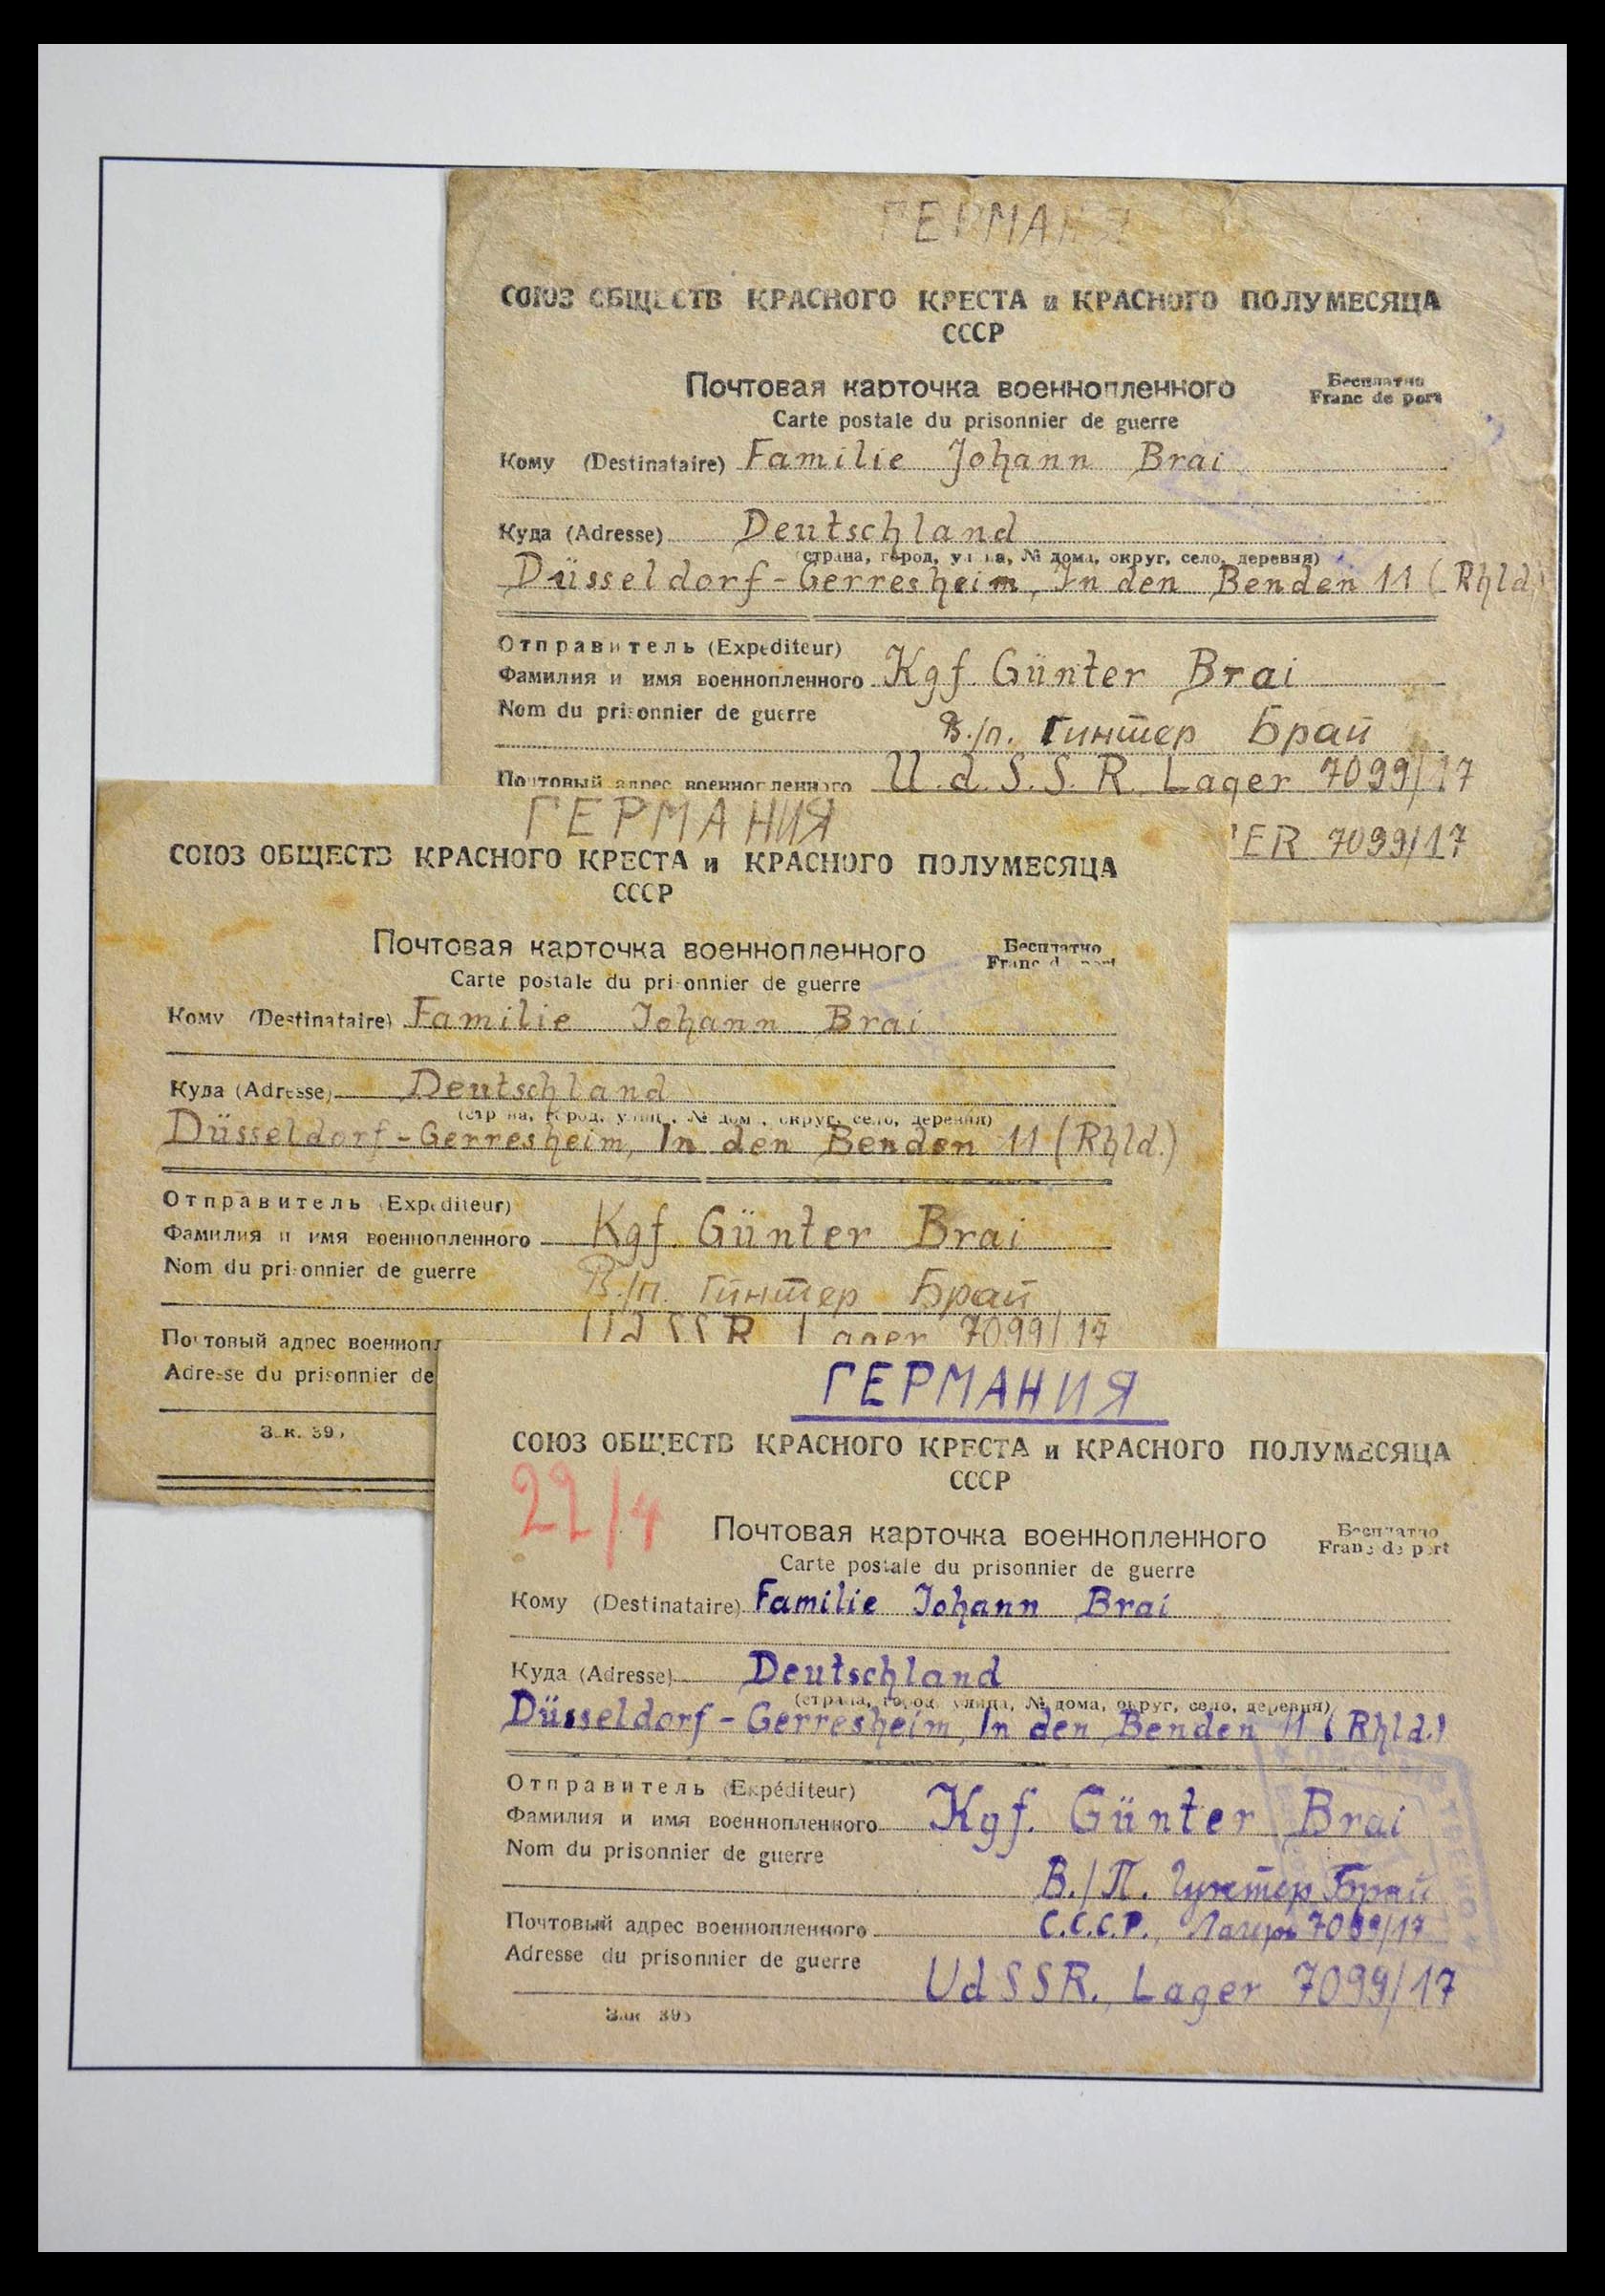 ГЕРМАНИЯ
СОЮЗ ОБЩЕСТВ КРАСНОГО КРЕСТА и КРАСНОГО ПОЛУМЕСЯЦА
СССР
Почтовая карточка военнопленного
Бесплатно
Carte postale du prisonnier de guerre
Franc de port
Кому (Destinataire) Familie Johann Brai
Куда (Adresse) Deutschland
(страна, город, улица, № дома, округ, село, деревня)
Düsseldorf-Gerresheim, In den Benden 11 (Rhld.)
Отправитель (Expéditeur)
Фамилия и имя военнопленного Kgf. Günter Brai
Nom du prisonnier de guerre
В./п. Гинтер Брай
Почтовый адрес военнопленного U.d.S.S.R. Lager 7099/17
7099/17
ГЕРМАНИЯ
СОЮЗ ОБЩЕСТВ КРАСНОГО КРЕСТА и КРАСНОГО ПОЛУМЕСЯЦА
СССР
Почтовая карточка военнопленного
Бесплатно
Carte postale du prisonnier de guerre
Franc de port
Кому (Destinataire) Familie Johann Brai
Куда (Adresse) Deutschland
(страна, город, улица, № дома, округ, село, деревня)
Düsseldorf-Gerresheim, In den Benden 11 (Rhld.)
Отправитель (Expéditeur)
Фамилия и имя военнопленного Kgf. Günter Brai
Nom du prisonnier de guerre
В./п. Гинтер Брай
UdSSR Lager 7099/17
Почтовый адрес военнопл
Adresse du prisonnier de
Зак. 395
ГЕРМАНИЯ
СОЮЗ ОБЩЕСТВ КРАСНОГО КРЕСТА и КРАСНОГО ПОЛУМЕСЯЦА
СССР
22/4
Почтовая карточка военнопленного
Бесплатно
Carte postale du prisonnier de guerre
Franc de port
Кому (Destinataire) Familie Johann Brai
Куда (Adresse) Deutschland
(страна, город, улица, № дома, округ, село, деревня)
Düsseldorf-Gerresheim, In den Benden 11 (Rhld.)
Отправитель (Expéditeur)
Фамилия и имя военнопленного Kgf. Günter Brai
Nom du prisonnier de guerre
В./П. Гунтер Брай
Почтовый адрес военнопленного С.С.С.Р., Лагерь 7099/17
Adresse du prisonnier de guerre
UdSSR. Lager 7099/17
Зак 395